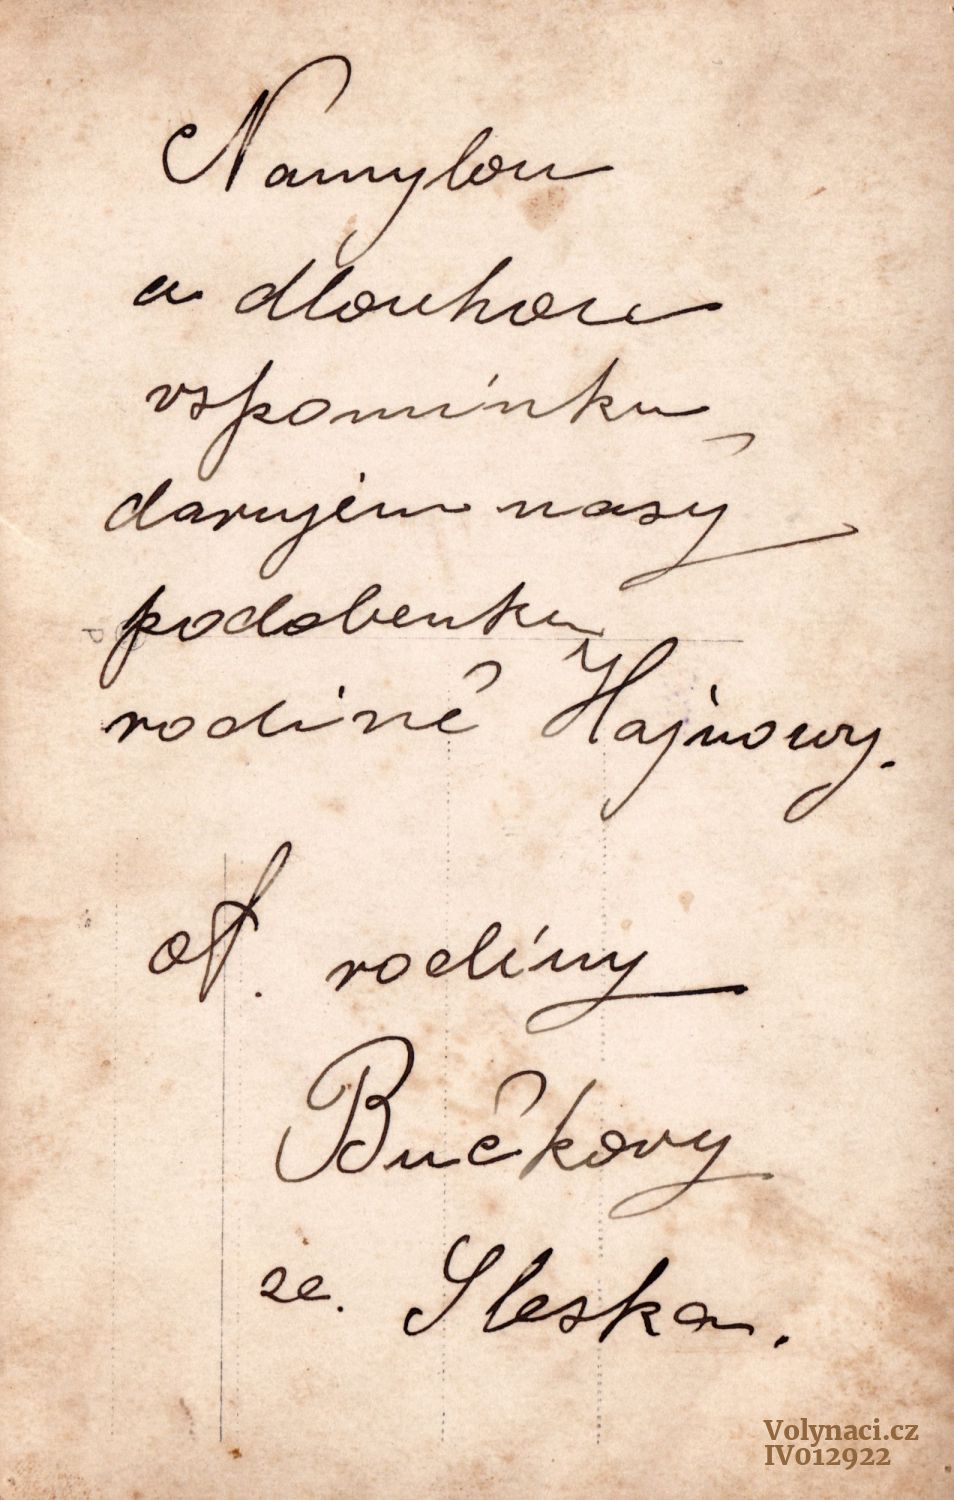 Namylou
a dlouhou
vspomínku
darujem nasỹ
podobenku
rodině Hajnowy.
ot. rodíny
Bučkovy
ze. Sleska.
Volynaci.cz
IV012922